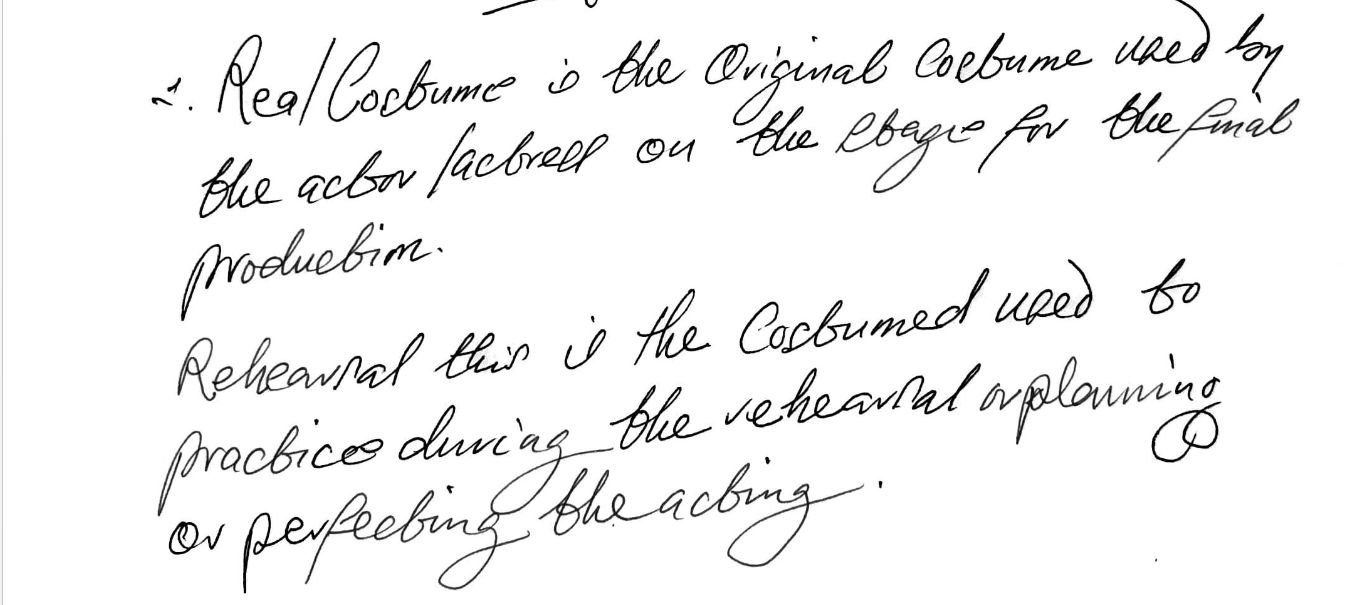 1. Real Costume is the Original Costume used by
the actor/actress on the stage for the final
production.
Rehearsal this is the Costumed used to
practice during the rehearsal or planning
or perfecting the acting.